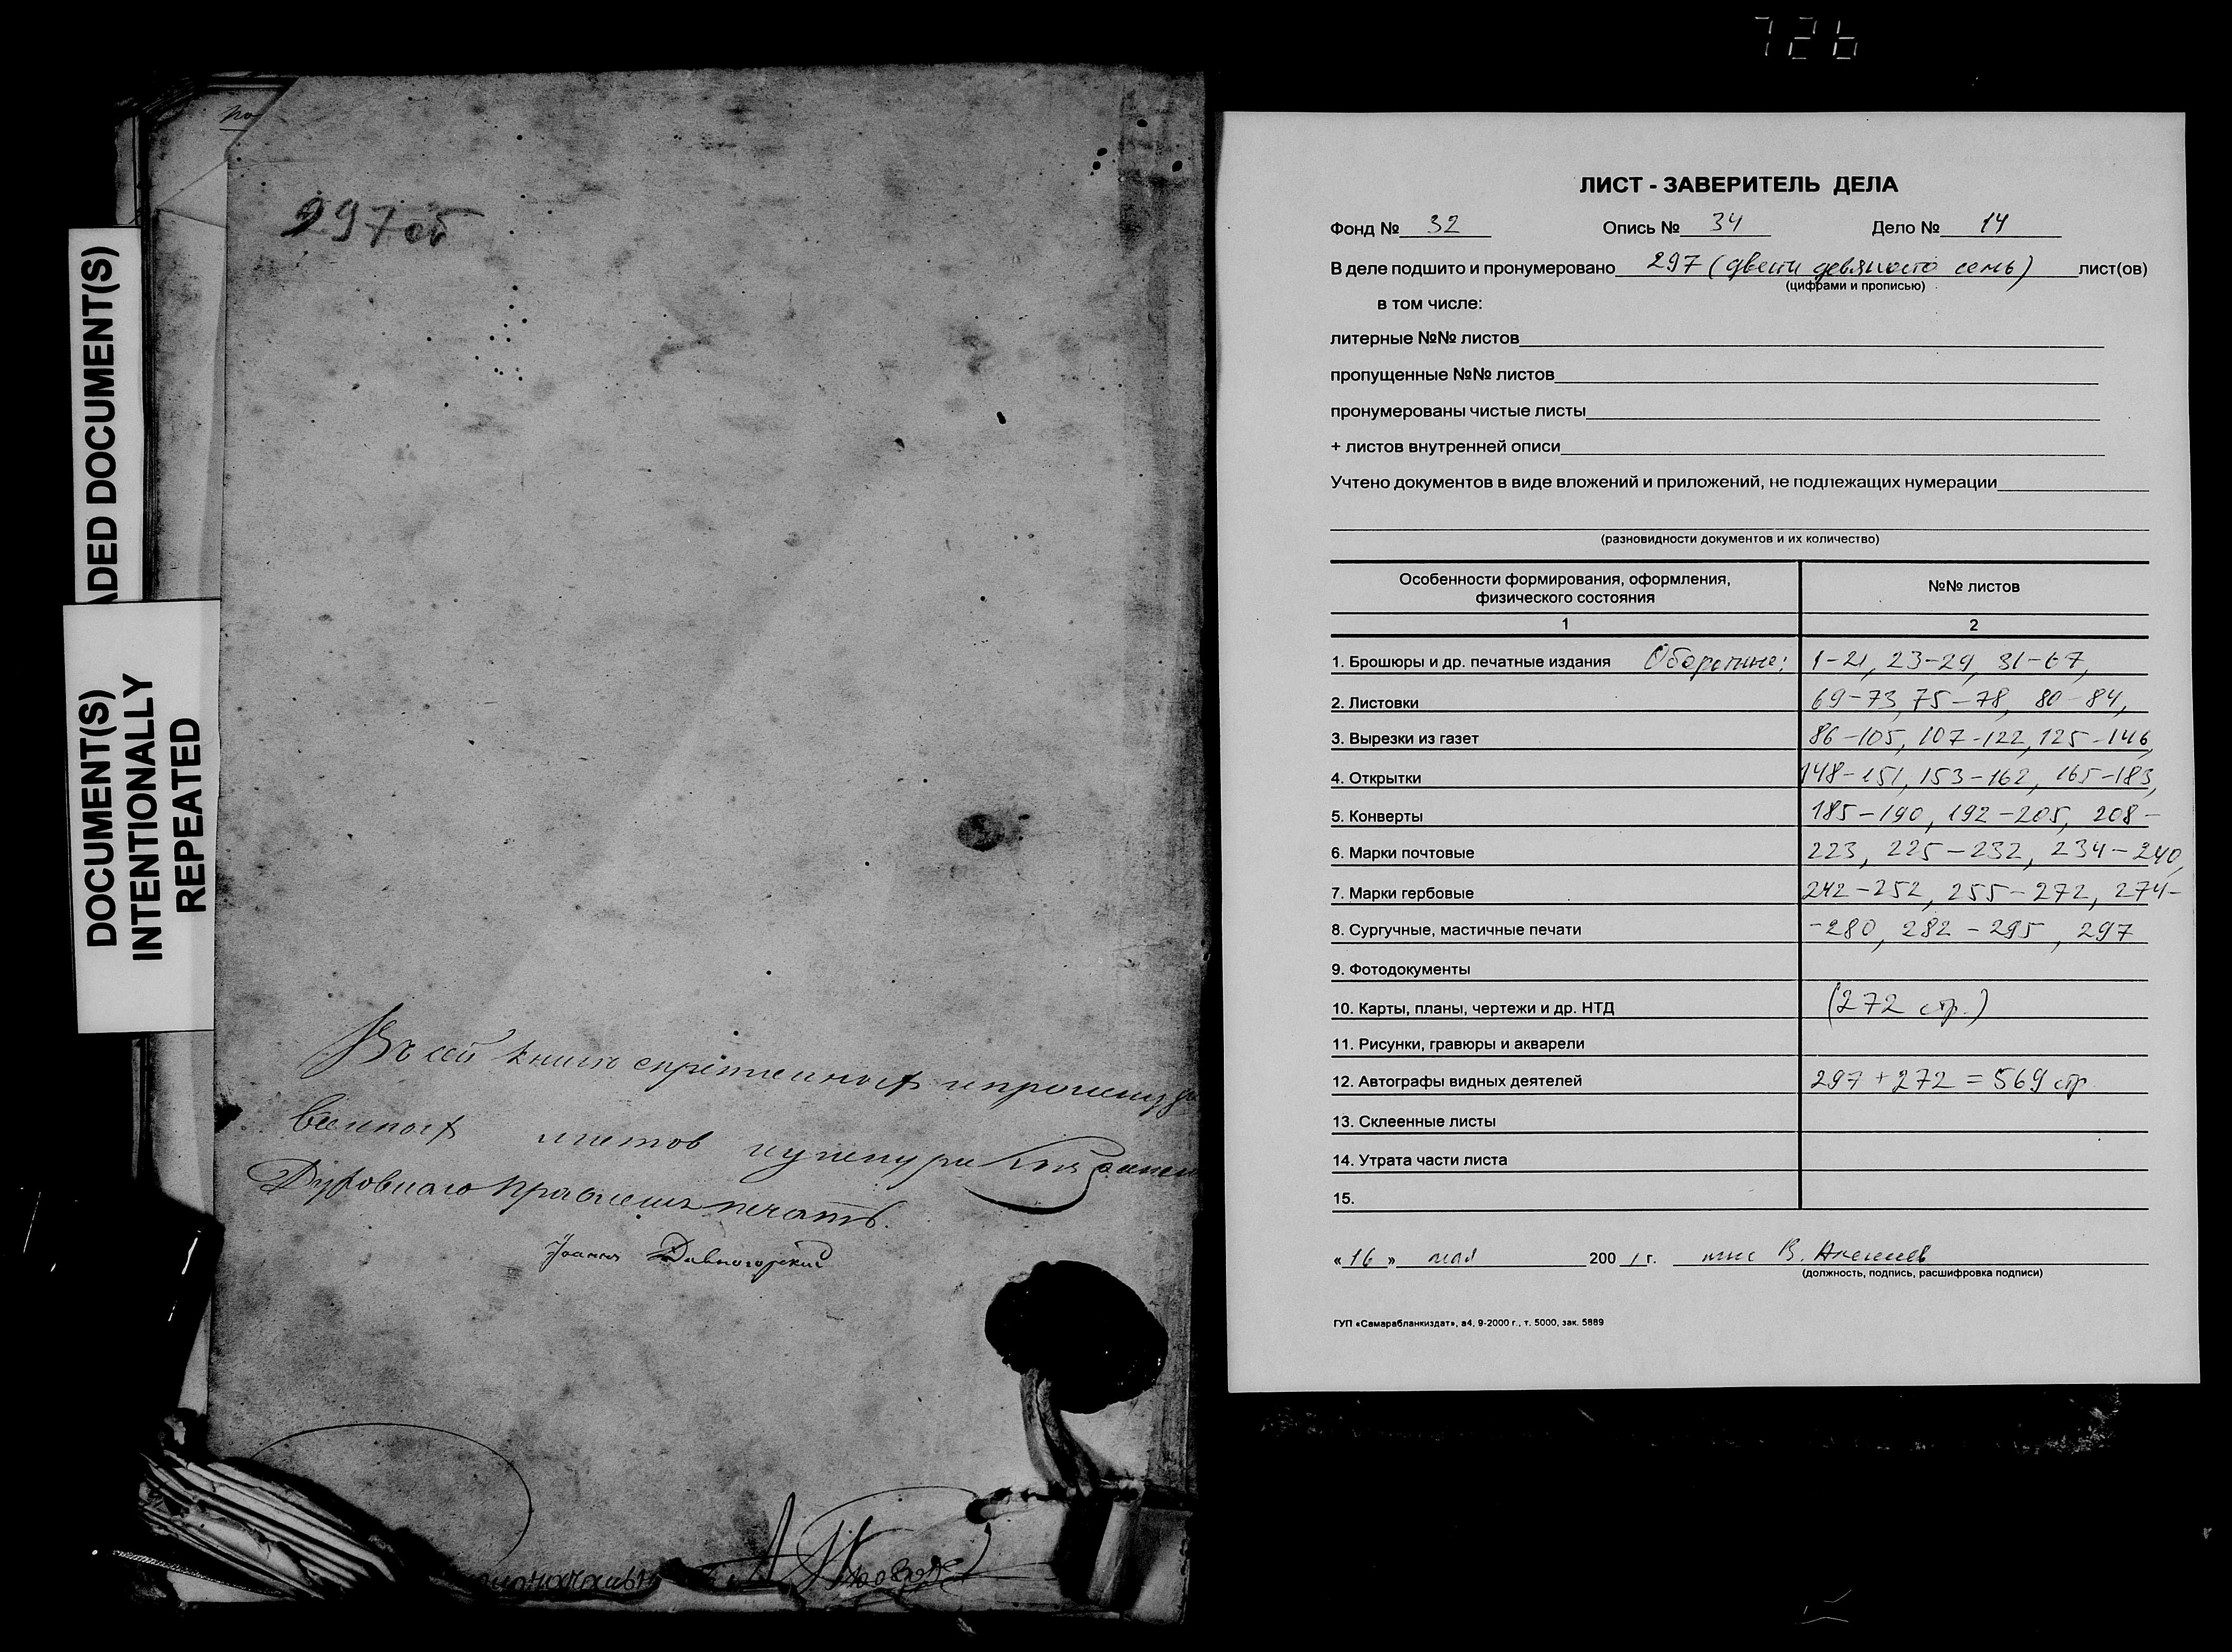 726
ADED DOCUMENT(S)
DOCUMENT(S)
INTENTIONALLY
REPEATED
297об
Въ сей книге
листов
Духовнаго Правления печать.
Иоаннъ Дивногорский
ЛИСТ - ЗАВЕРИТЕЛЬ ДЕЛА
Фонд № 32 Опись № 34 Дело № 14
В деле подшито и пронумеровано 297 (двести девяносто семь) лист(ов)
(цифрами и прописью)
в том числе:
литерные №№ листов
пропущенные №№ листов
пронумерованы чистые листы
+ листов внутренней описи
Учтено документов в виде вложений и приложений, не подлежащих нумерации
(разновидности документов и их количество)
Особенности формирования, оформления, физического состояния №№ листов
1 2
1. Брошюры и др. печатные издания Оборотные: 1-21, 23-29, 31-67,
2. Листовки 69-73, 75-78, 80-84,
3. Вырезки из газет 86-105, 107-122, 125-146,
4. Открытки 148-151, 153-162, 165-183,
5. Конверты 185-190, 192-205, 208-
6. Марки почтовые 223, 225-232, 234-240,
7. Марки гербовые 242-252, 255-272, 274-
8. Сургучные, мастичные печати -280, 282-295, 297
9. Фотодокументы
10. Карты, планы, чертежи и др. НТД (272 стр.)
11. Рисунки, гравюры и акварели
12. Автографы видных деятелей 297 + 272 = 569 стр.
13. Склеенные листы
14. Утрата части листа
15.
«16» мая 2001 г. В.
(должность, подпись, расшифровка подписи)
ГУП «Самарабланкиздат», а4, 9-2000 г., т. 5000, зак. 5889